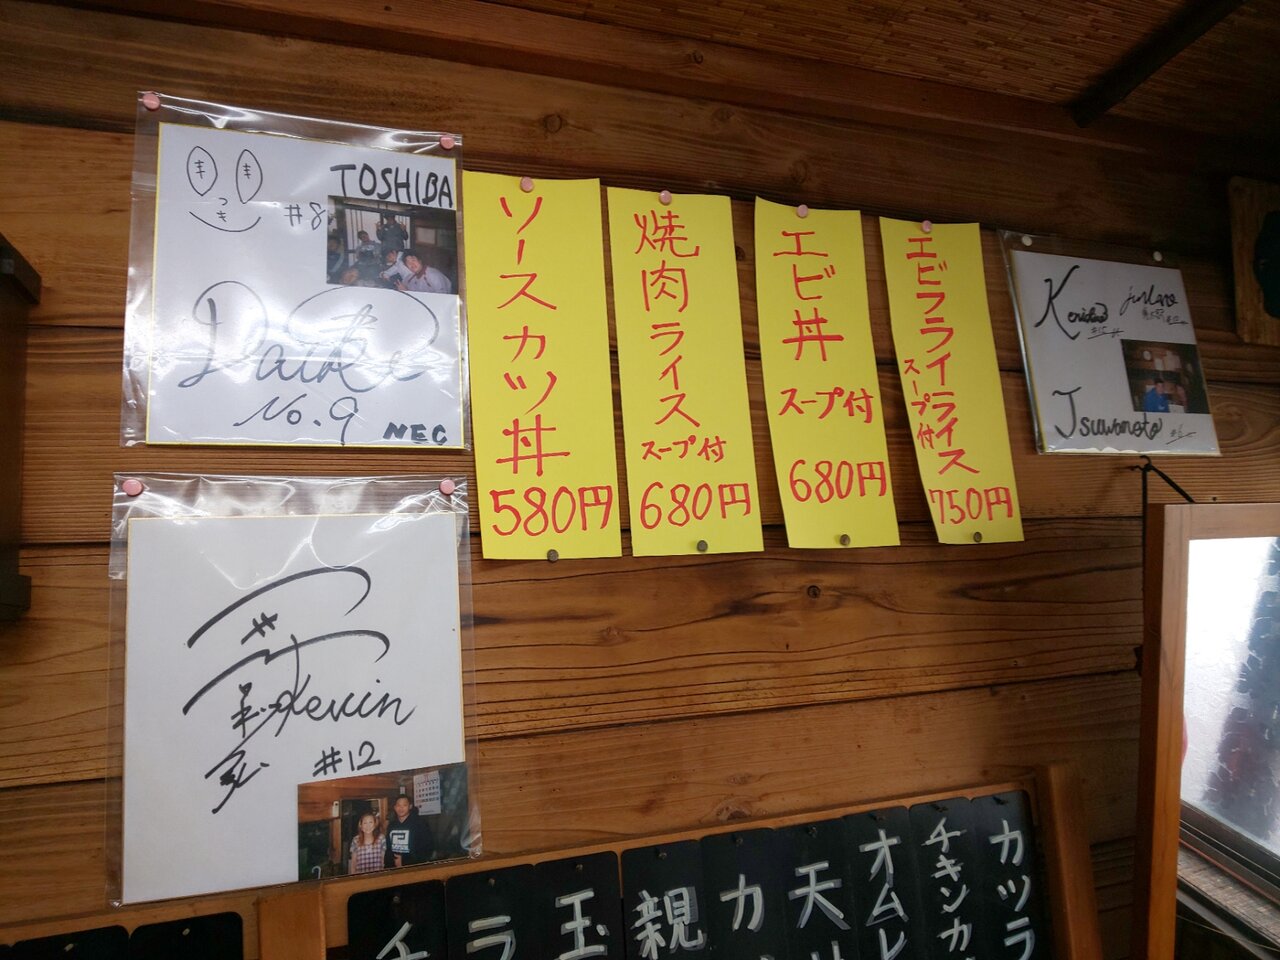 TOSHIBA
#8
No.9
NEC
Kevin
#12
ソースカツ丼
580円
焼肉ライス
スープ付
680円
エビ丼
スープ付
680円
エビフライライス
スープ付
750円
カツラ
チキンカ
オムレ
天
カ
親
玉
ラ
チ